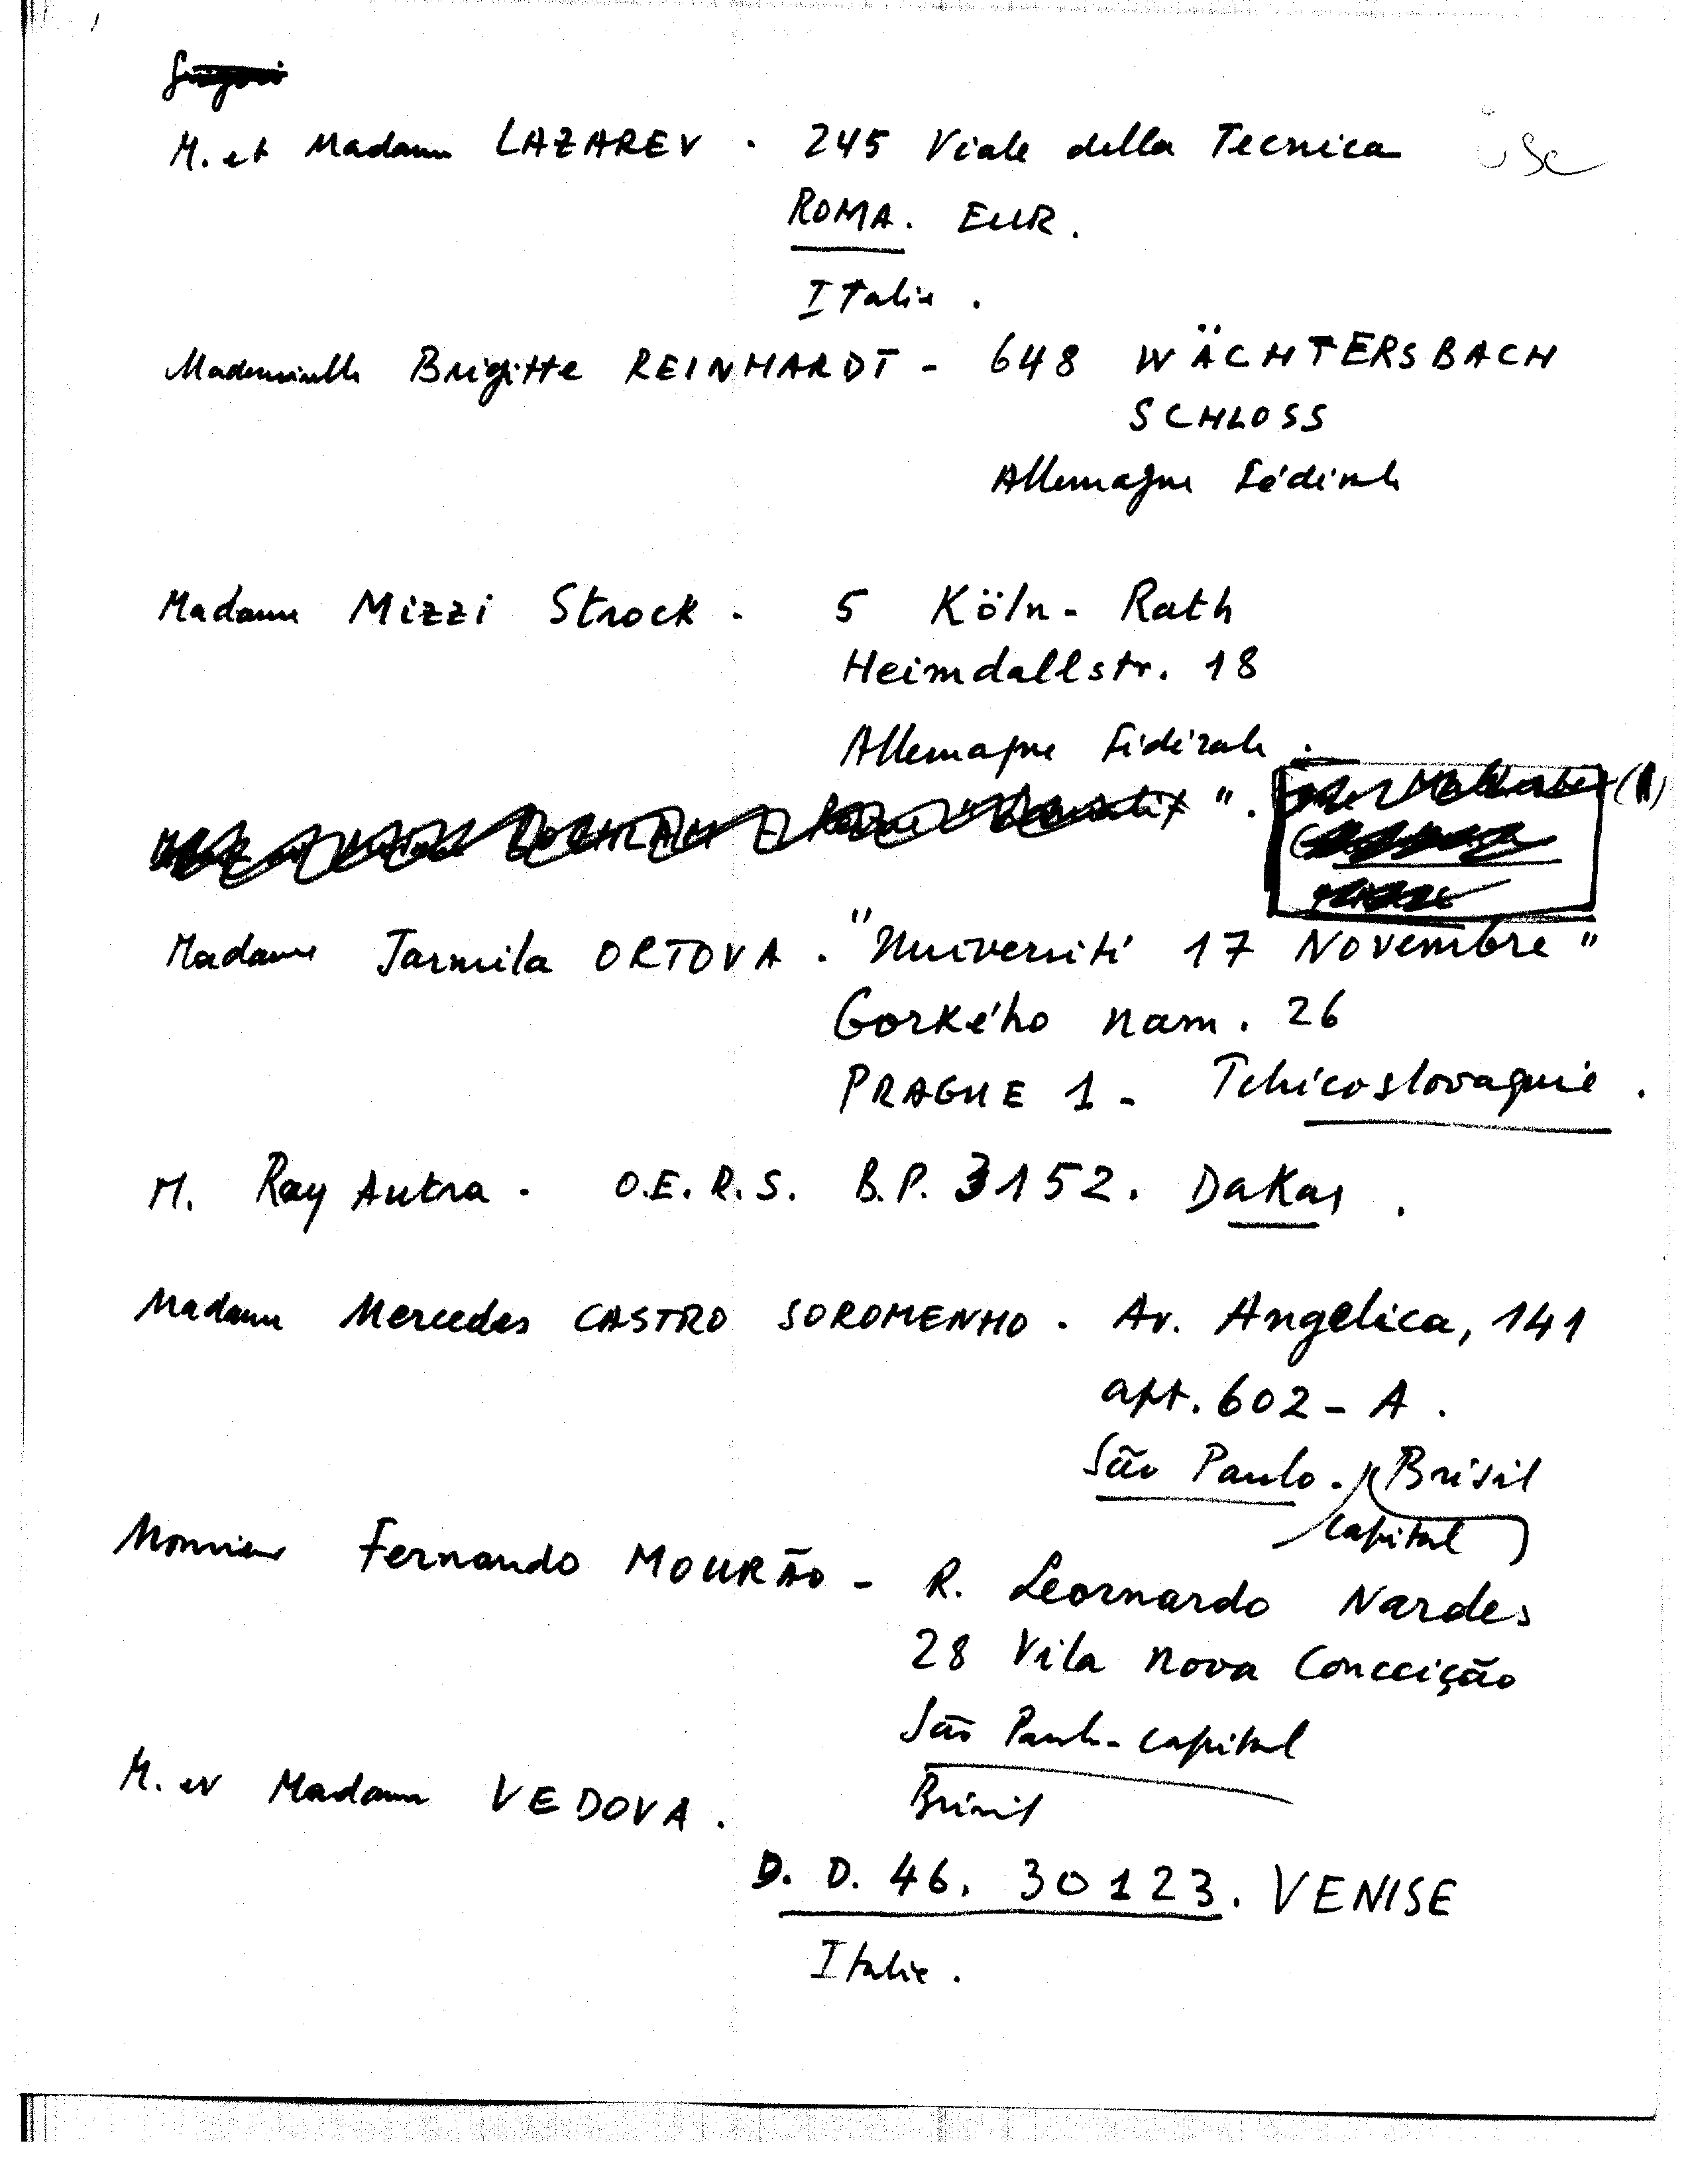 M. et Madame LAZAREV . 245 Viale della Tecnica
ROMA. EUR.
Italie .
Mademoiselle Brigitte REINHARDT - 648 WÄCHTERSBACH
SCHLOSS
Allemagne Fédérale
Madame Mizzi Strock - 5 Köln - Rath
Heimdallstr. 18
Allemagne Fédérale .
Madame Jarmila ORTOVA . "Université 17 Novembre"
Gorkého nam. 26
PRAGUE 1 - Tchécoslovaquie .
M. Ray Autra . O.E.R.S. B.P. 3152. Dakar .
Madame Mercedes CASTRO SOROMENHO . Av. Angelica, 141
apt. 602 - A .
São Paulo . Brésil
Capital
Monsieur Fernando MOURÃO - R. Leornardo Nardes
28 Vila Nova Conceição
São Paulo - Capital
Brésil
M. et Madame VEDOVA .
D. D. 46. 30123. VENISE
Italie .